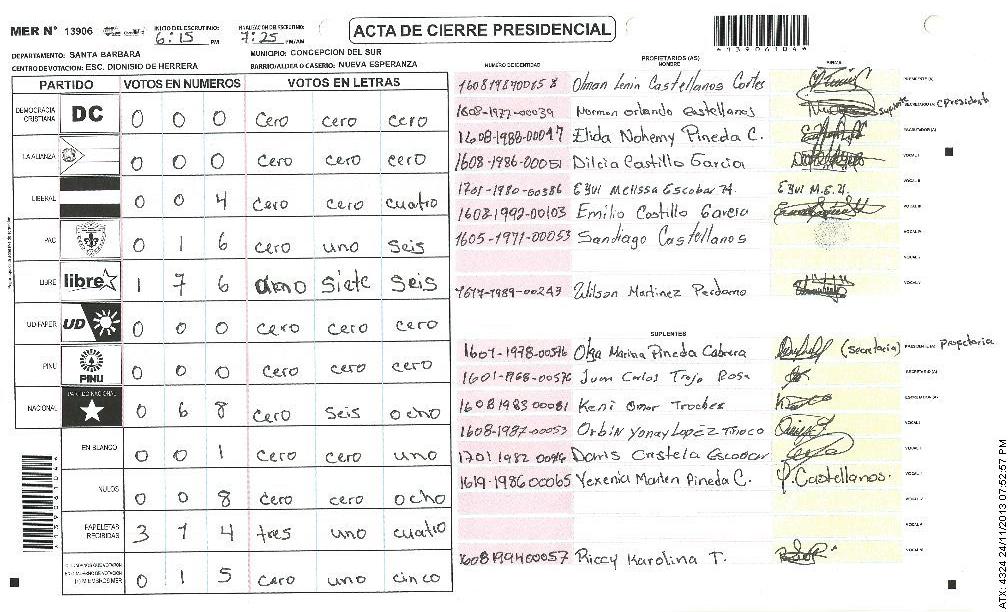 MER N° 13906
INICIO DEL ESCRUTINIO: 6:15 PM
FINALIZACION DE ESCRUTINIO: 7:25 PM/AM
ACTA DE CIERRE PRESIDENCIAL
DEPARTAMENTO: SANTA BARBARA
MUNICIPIO: CONCEPCION DEL SUR
CENTRO DE VOTACION: ESC. DIONISIO DE HERRERA
BARRIO/ALDEA O CASERIO: NUEVA ESPERANZA
PARTIDO VOTOS EN NUMEROS VOTOS EN LETRAS
DEMOCRACIA CRISTIANA DC 0 0 0 cero cero cero
LA ALIANZA 0 0 0 cero cero cero
LIBERAL 0 0 4 cero cero cuatro
PAC 0 1 6 cero uno seis
LIBRE libre 1 7 6 uno siete seis
UD/FAPER UD 0 0 0 cero cero cero
PINU PINU 0 0 0 cero cero cero
NACIONAL PARTIDO NACIONAL 0 6 8 cero seis ocho
EN BLANCO 0 0 1 cero cero uno
NULOS 0 0 8 cero cero ocho
PAPELETAS RECIBIDAS 3 1 4 tres uno cuatro
0 1 5 cero uno cinco
PROPIETARIOS (AS)
NUMERO DE IDENTIDAD NOMBRE FIRMA
Olman Lenin Castellanos Cortes PRESIDENTE (A)
1608-1977-00039 Norman Orlando Castellanos suplente (President
1608-1988-00047 Elida Nohemy Pineda C. ESCRUTADOR (A)
1608-1986-00051 Dilcia Castillo Garcia VOCAL I
1701-1980-00386 Eyui Melissa Escobar M. Eyui M.E.M. VOCAL II
1608-1992-00103 Emilio Castillo Garcia VOCAL III
1605-1971-00053 Santiago Castellanos VOCAL IV
VOCAL V
1617-1989-00243 Wilson Martinez Perdomo
SUPLENTES
1607-1978-00596 Olga Marina Pineda Cabrera (secretaria) PRESIDENTE (A) Propietaria
1601-1968-00576 Juan Carlos Trejo Rosa SECRETARIO (A)
1608 1983 00081 Keni Omar Troches ESCRUTADOR (A)
1608-1987-00053 Orbin Yonay Lopez Tinoco VOCAL I
Doris Cristela Escobar
1619-1986 00065 Yexenia Marlen Pineda C. Y. Castellanos.
1608 1994 00057 Riccy Karolina T.
ATX: 4324 24/11/2013 07:52:57 PM